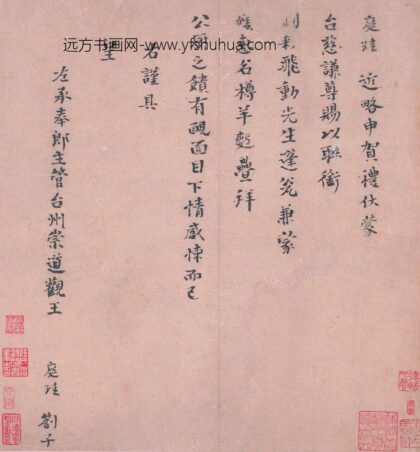 庭珪 近略申賀禮伏蒙
台慈謙尊賜以聯銜
飛動光生蓬荜兼蒙
惠名樽羊麪疊拜
公賜之饋有靦面目下情感悚而已
右謹具
呈
左承奉郎主管台州崇道觀王
庭珪 劄子
远方书画网-www.yishuhua.com